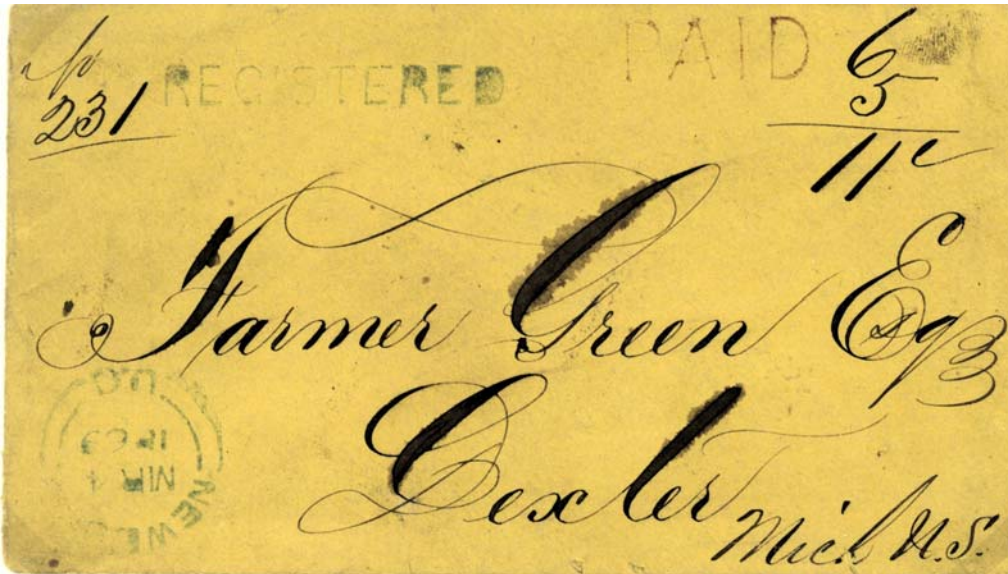 No
231
REGISTERED
PAID
6
5
11c
Farmer Green Esq
Dexter
Mich U.S.
U.C.
MR 4